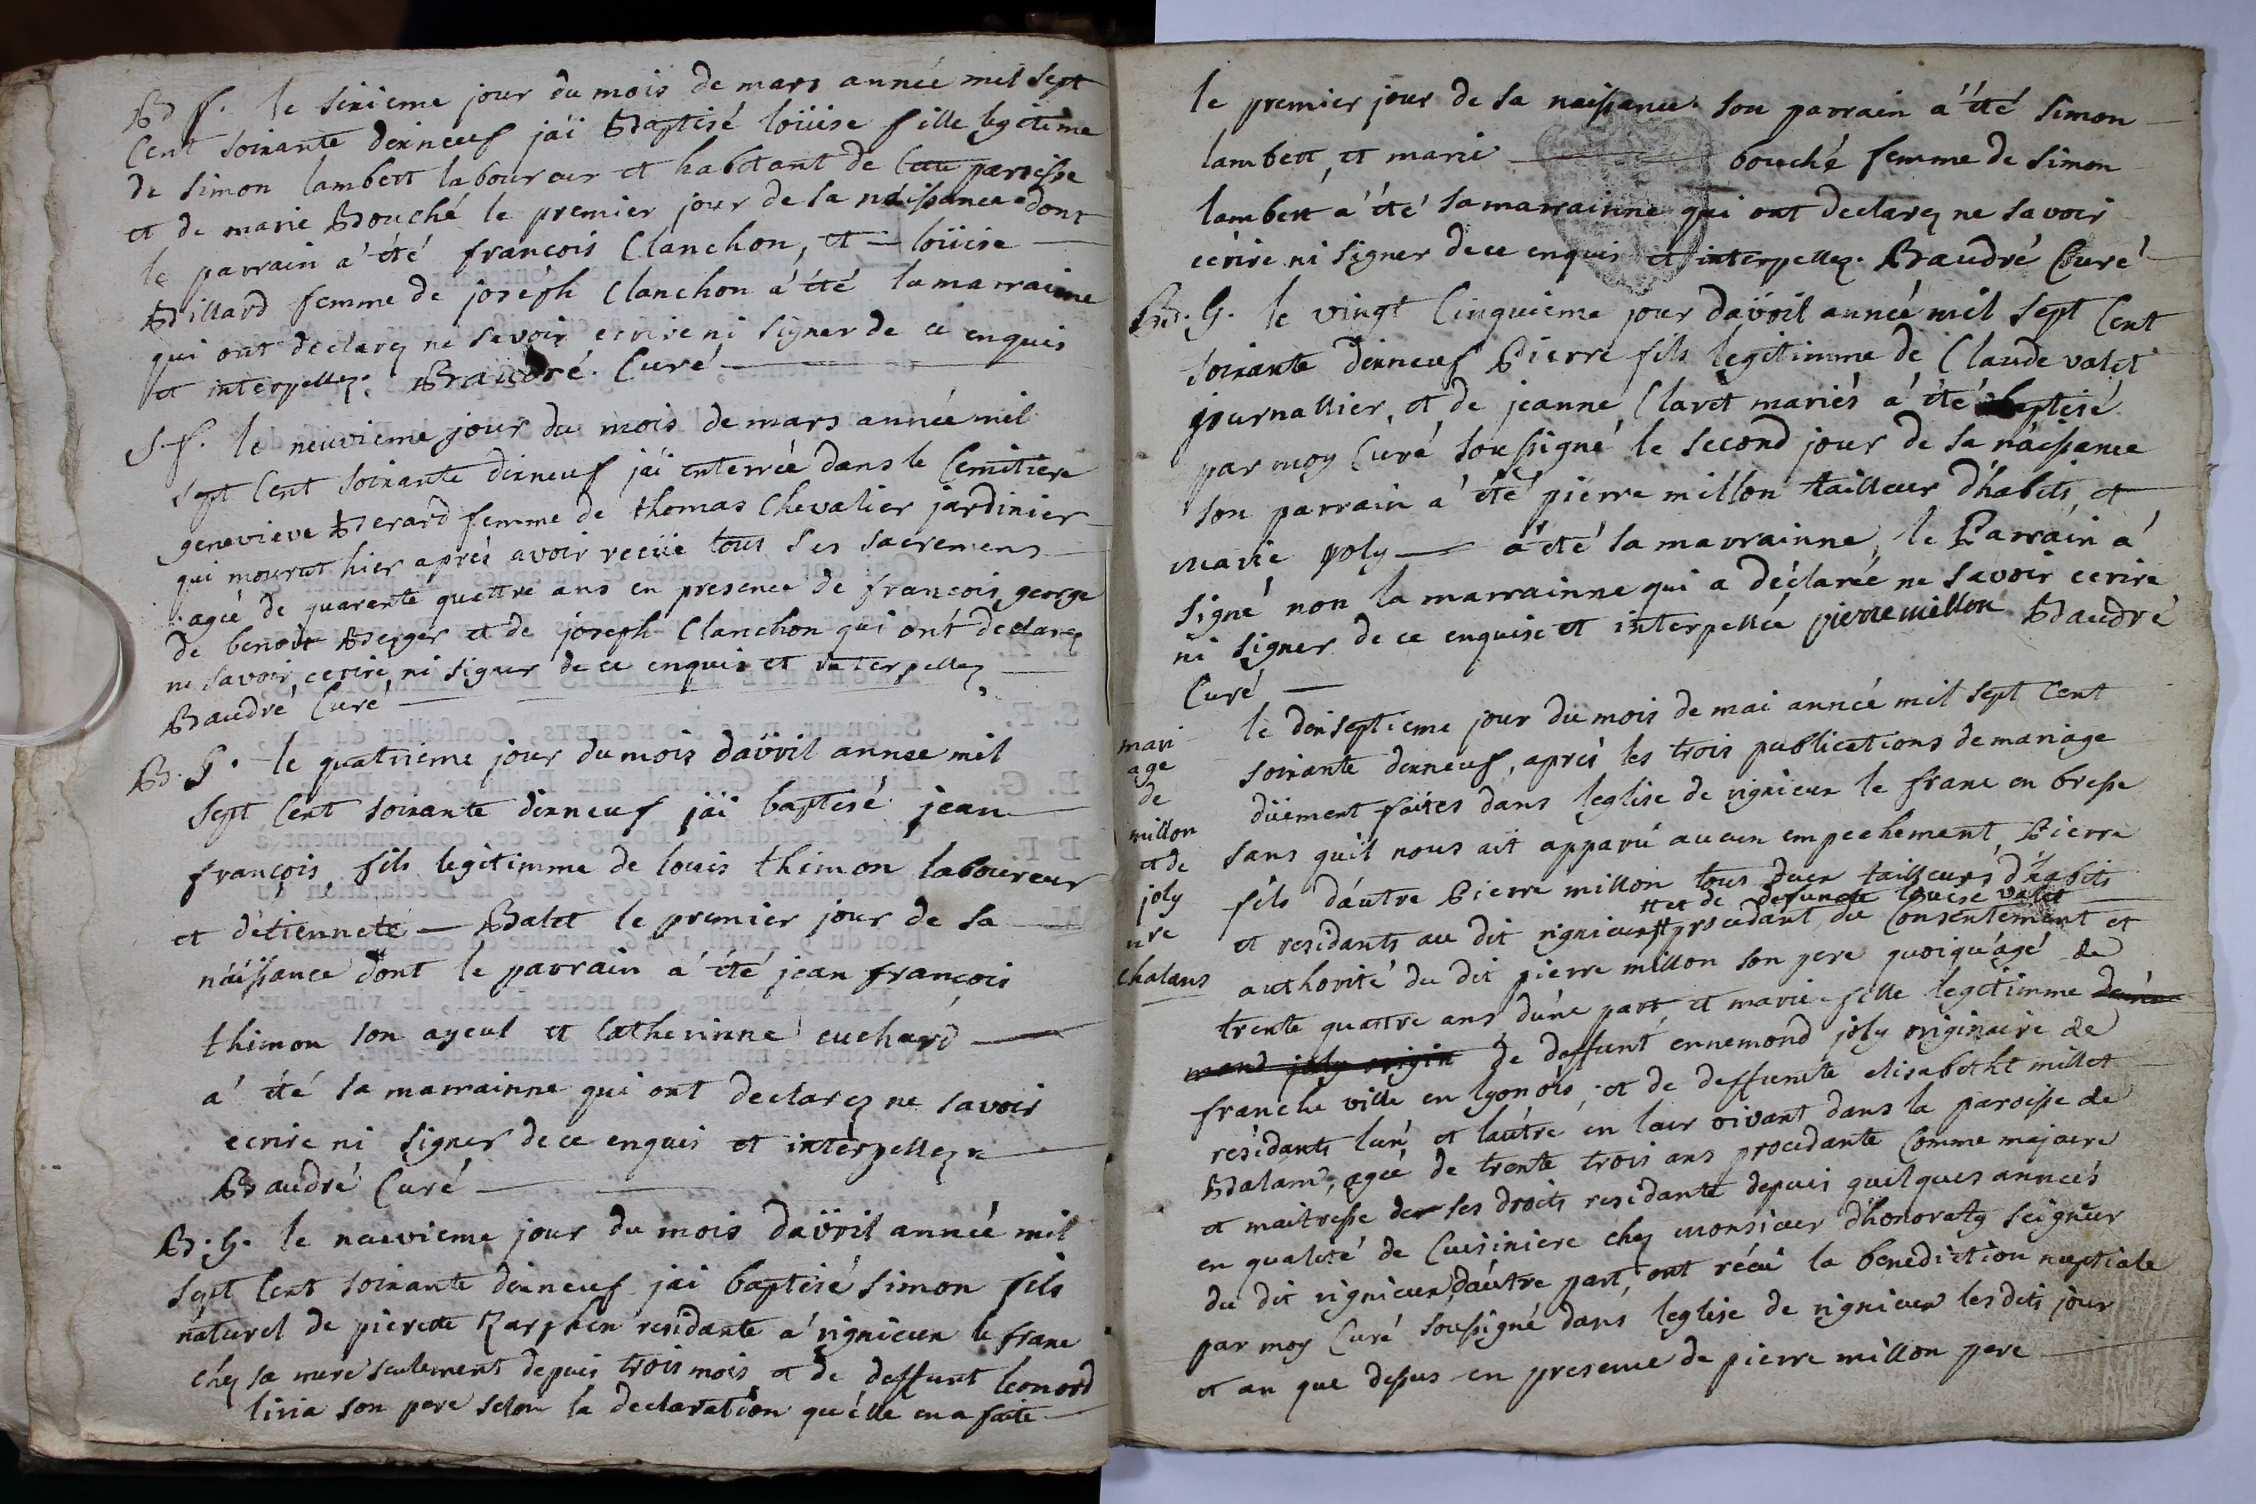 B f. le sixieme jour du mois de mars année mil sept
Cent soixante dixneuf j'ai Baptisé loüise fille legitime
de Simon lambert laboureur et habitant de paroisse
et de marie Bouché le premier jour de sa näissance dont
le parrain a été françois Clanchon, et – loüise –
Billard femme de joseph Clanchon a été la marraine
qui ont declarez ne savoir ecrire ni signer de ce enquis
et interpellez. Baudré. Curé
S. f. le neuvieme jour du mois de mars année mil
sept Cent soixante dixneuf j'ai enterrée dans le Cemitiere
genevieve Berard femme de thomas Chevalier jardinier
qui mourut hier aprés avoir recüe tous ses sacremens
agée de quarente quattre ans en presence de francois george
de benoit Berger et de joseph Clanchon qui ont declarez
ne savoir ecrire ni signer de ce enquis et interpellez
Baudré Curé
B. G. le quatrieme jour du mois däv̈ril annee mil
sept Cent soixante dixneuf j'ai baptisé jean
françois fils legitimme de louis thimon laboureur
et d'etiennete – Balet le premier jour de sa
näissance dont le parrain a été jean françois
thimon son ayeul et Catherinne euchard –
a été sa marrainne qui ont declarez ne savoir
ecrire ni signer de ce enquis et interpellez
Baudré Curé
B. G. le neuvieme jour du mois däv̈ril année mil
sept Cent soixante dixneuf j'ai baptisé Simon fils
näturel de pierette residante a rignieux le franc
chez sa mere seulement depuis trois mois et de deffunt leonord
livia son pere selon la declaration qu'elle en a faite
le premier jour de sa naissance. son parrain a été Simon
lambert, et marie – bouché femme de Simon
lambert a été sa marrainne qui ont declarez ne savoir
ecrire ni signer de ce enquis et interpellez. Baudré Curé
B. G. le vingt Cinquieme jour däv̈ril année mil sept Cent
soixante dixneuf Pierre fils legitimme de Claude valet
journallier, et de jeanne Claret mariés a été baptisé
par moy Curé soussigné le second jour de sa näissance
son parrain a été pierre millon tailleur d'habits, et
marie poly – a été sa marrainne, le Parrain a
signé non la marrainne qui a déclarée ne savoir ecrire
ni signer de ce enquise et interpellée pierre millon Baudré
Curé
mari
age
de
millon
et de
joly
ure
chalans
le dixseptieme jour du mois de mai année mil sept Cent
soixante dixneuf, aprés les trois publications de mariage
düement faites dans leglise de rignieux le franc en bresse
sans qu'il nous ait apparu aucun empechement, Pierre
fils d'autre Pierre millon tous deux tailleurs d'habits
et de defuncte louise valet
et residants au dit rignieux procedant du Consentement et
authorité du dit pierre millon son pere quoiqu'agé de
trente quattre ans, d'une part, et marie fille legitimme
mond joly origin de deffunt ennemond joly originaire de
franche ville en lyonois, et de deffuncte elisabetht millet
résidants l'un et l'autre en leur vivant dans la paroisse de
Balam, agée de trente trois ans procedante Comme majeure
et maitresse de ses droits residante depuis quelques années
en qualité de Cuisiniere chez monsieur d'honoraty seigneur
du dit rignieux, d'autre part, ont réçu la benediction nuptiale
par moy Curé soussigné dans leglise de rignieux lesdits jour
et an que dessus en presence de pierre millon pere